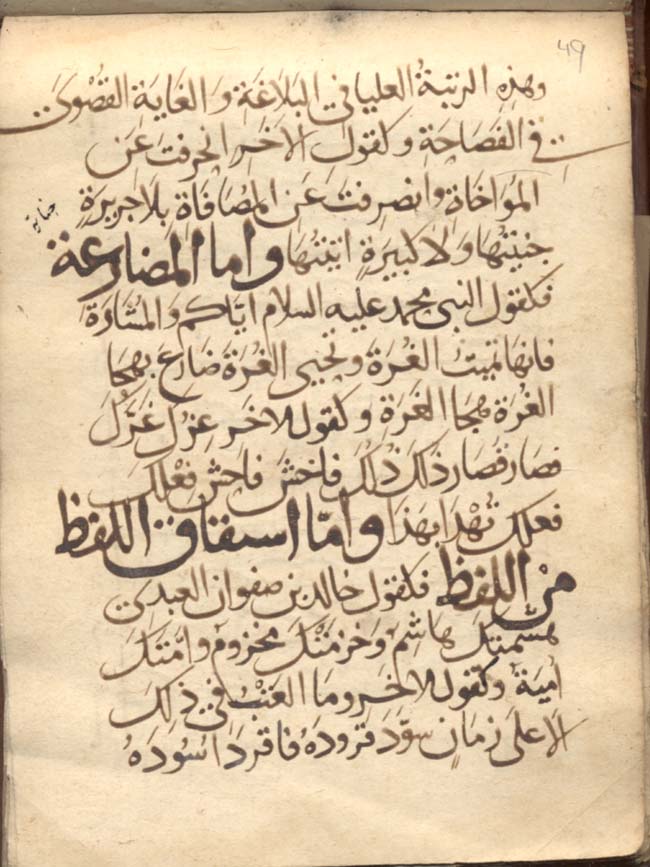 49
وهذِهِ الرتبةُ العليا في البَلَاغَةِ وَالغَايَةِ القُصْوىَ
في الفَصَاحَةِ وكقول الآخَرِ انحرفت عَن
المؤاخَاة وانصرفت عَن المصَافَاة بلاجَرِيرَةٍ
جناية
جنيتُهَا وَلا كبيرَةٍ اتيتُهَا واما المضارعة
فكقول النبى محمد عليه السلام ايّاكم وَالمشَارّةَ
فانهَا تميتُ الغُرَةَ وتحيى العُرَةَ ضَارَعَ بهجَا
الغُرَة هجَا العُرَة وكقول الاخر عزك غَرَّكَ
فصَار قصَار ذلك ذُلكَ فاخشَ فاحِشَ فِعْلِكَ
فعلك تُهْدَا بهَذَا وامّا اشتقاق اللفظ
من اللفظ فكقول خالد بن صفوان العبدى
هشمتك هَاشِم وخزمَتْكَ مخزوم وامّتكَ
اميَةُ وكقول الاخر وما العَتْبُ في ذلِكَ
الا على زمَانٍ سوّد قرودَهُ فاقردَ اسُودَهُ